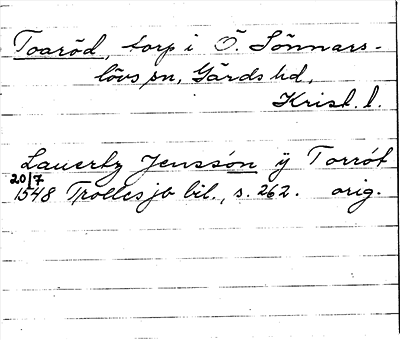 Toaröd, torp i Ö. Sönnars-
lövs sn, Gärds hd,
Krist. l.
Lauerty Jenssøn ÿ Torröt
20/7
1548 Trollesjb bil., s. 262. orig.